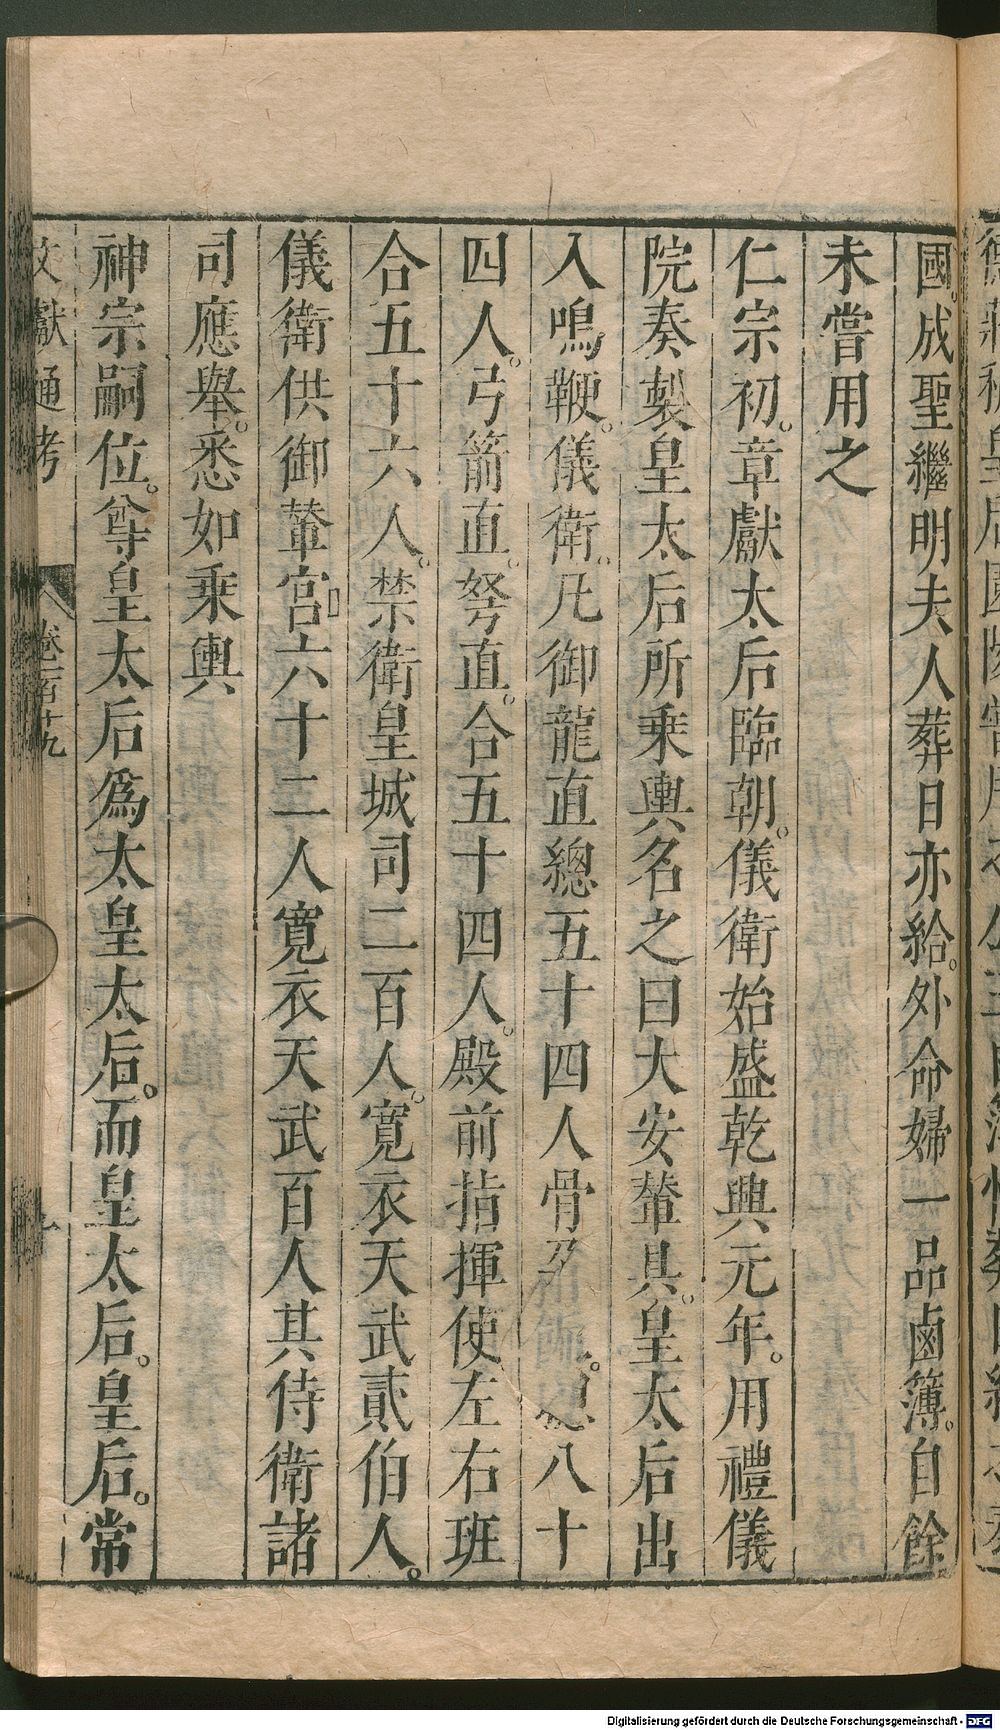 國。成聖繼明夫人葬日亦給。外命婦一品鹵簿。自餘
未嘗用之
仁宗初。章獻太后臨朝。儀衛始盛乾興元年。用禮儀
院奏製皇太后所乗輿名之曰大安輦具。皇太后出
入鳴鞭。儀衛。凡御龍直總五十四人骨朶八十
四人。弓箭直。弩直。合五十四人。殿前指揮使左右班
合五十六人。禁衛皇城司二百人。寛衣天武貳伯人。
儀衛供御輦官六十二人寛衣天武百人其侍衛諸
司應舉。悉如乗輿
神宗嗣位。尊皇太后爲太皇太后。而皇太后。皇后。常
文獻通考
卷一百十九
Digitalisierung gefördert durch die Deutsche Forschungsgemeinschaft - DFG